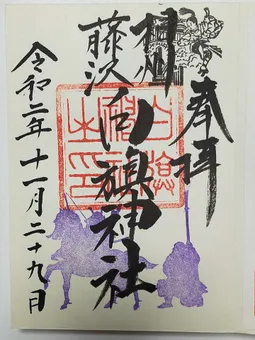 奉拝
相州
藤沢
白旗神社
令和二年十一月二十九日